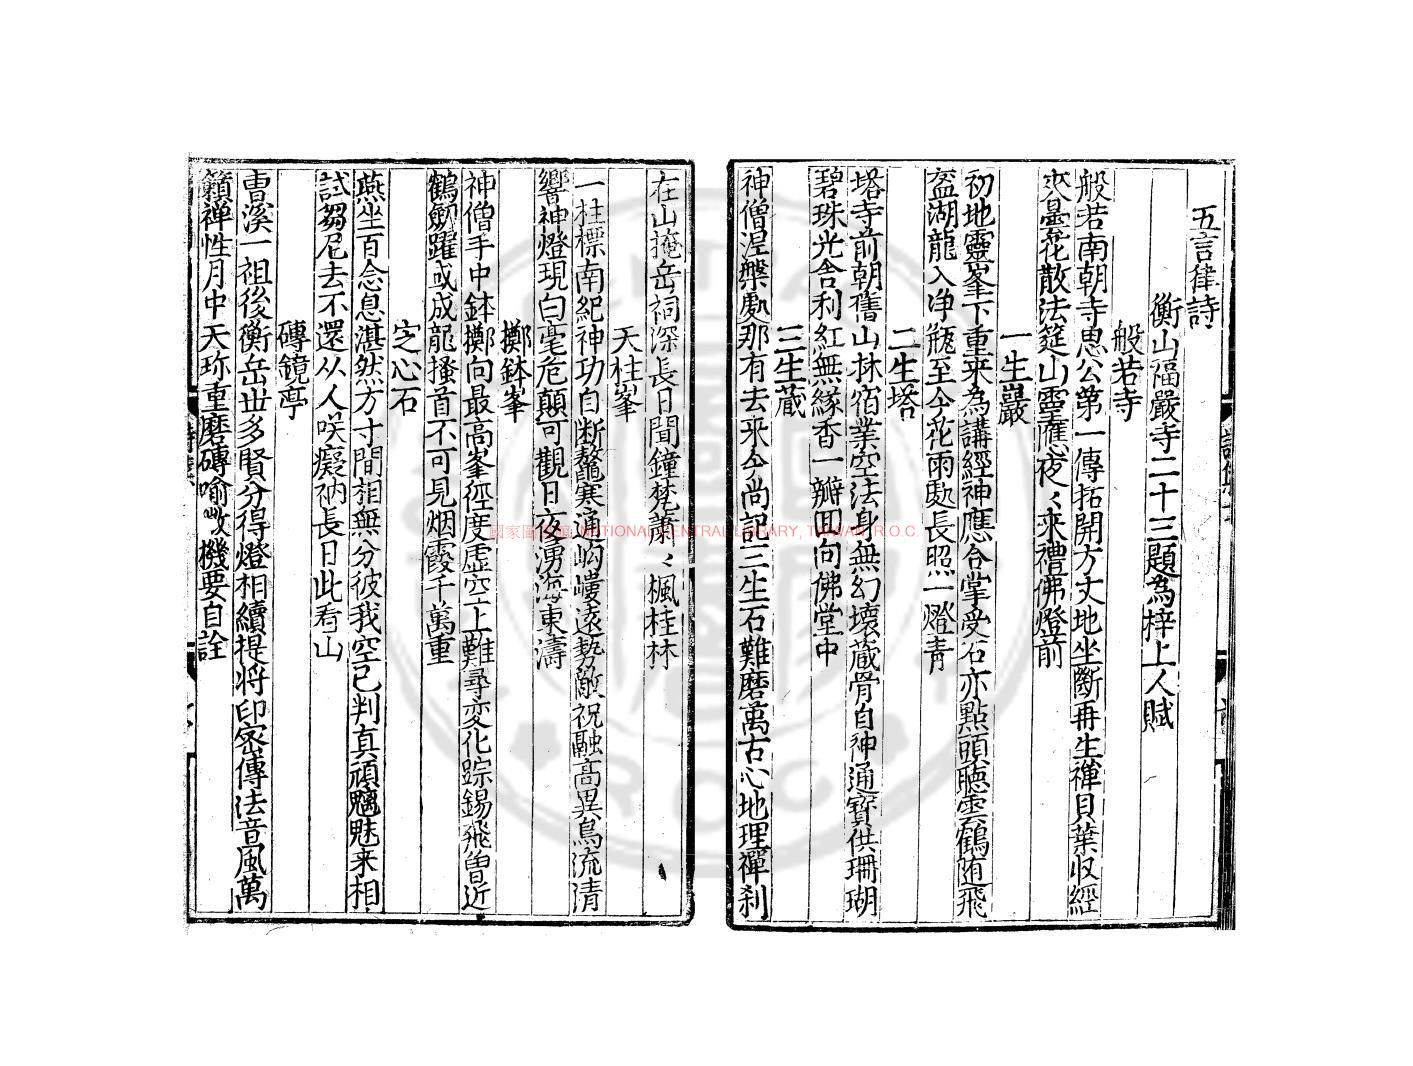 五言律詩
衡山福嚴寺二十三題為梓上人賦
般若寺
般若南朝寺思公第一傳拓開方丈地坐斷再生禪貝葉收經
夾曇花散法筵山靈應夜〻来禮佛燈前
一生巖
初地靈峯下重来為講經神應合掌受石亦點頭聽雲鶴隨飛
盔湖龍入净瓶至今花雨處長照一燈青
二生塔
塔寺前朝舊山林宿業空法身無幻壞蔵骨自神通寳供珊瑚
碧珠光舎利紅無緣香一瓣囬向佛堂中
三生蔵
神僧涅槃處那有去来今尚記三生石難磨萬古心地理禪刹
在山掩岳祠深長日聞鐘梵蕭〻楓桂林
天柱峯
一柱標南紀神功自断鼇寒通岣嶁遠勢敵祝融髙異鳥流清
響神燈現白毫危顛可觀日夜湧海東濤
擲鉢峯
神僧手中鉢擲向最高峯徑度虚空上難尋変化踪錫飛曽近
鶴劒躍或成龍搔首不可見烟霞千萬重
定心石
燕坐百念息湛然方寸間相無分彼我空已判真頑魑魅来相
試芻尼去不還从人咲癡衲長日此看山
磚鏡亭
曺溪一祖後衡岳丗多賢分得燈相續提将印宻傳法音風萬
籟禅性月中天珎重磨磚喻機要自詮
國家圖書館 NATIONAL CENTRAL LIBRARY, TAIWAN, R.O.C.